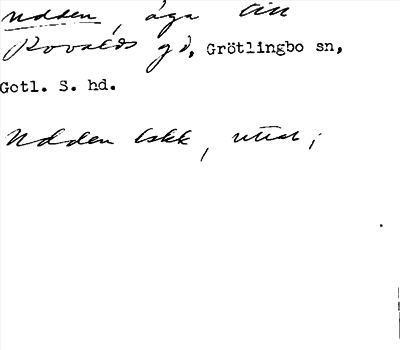 Udden, äga till
Rovalds gd, Grötlingbo sn,
Gotl. S. hd.
Udden bakk, uttal;